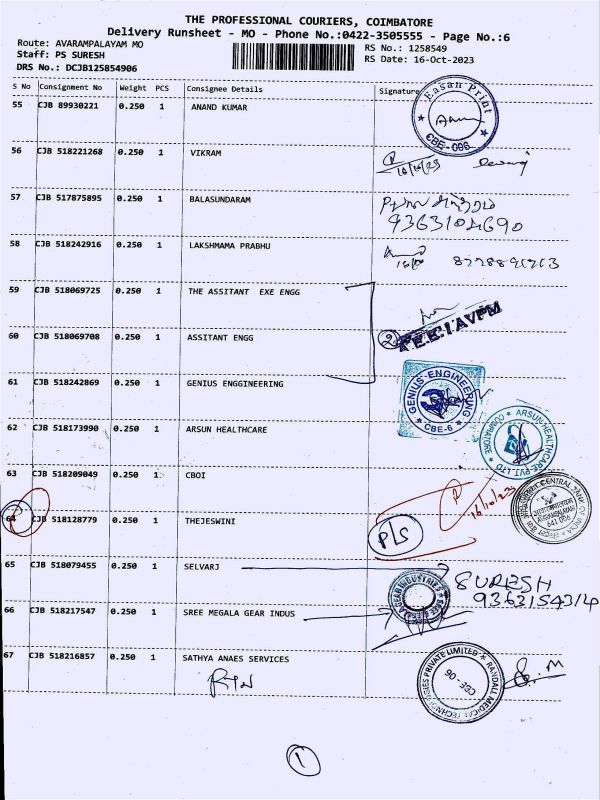 THE PROFESSIONAL COURIERS, COIMBATORE
Delivery Runsheet - MO - Phone No.:0422-3505555 - Page No.:6
Route: AVARAMPALAYAM MO
RS No.: 1258549
Staff: PS SURESH
RS Date: 16-Oct-2023
DRS No.: DCJB125854906
S No Consignment No Weight PCS Consignee Details Signature
55 CJB 89930221 0.250 1 ANAND KUMAR
Easan Print
CBE-006
56 CJB 518221268 0.250 1 VIKRAM
16/10/23
57 CJB 517875895 0.250 1 BALASUNDARAM
9363104690
58 CJB 518242916 0.250 1 LAKSHMAMA PRABHU
59 CJB 518069725 0.250 1 THE ASSITANT EXE ENGG
60 CJB 518069708 0.250 1 ASSITANT ENGG
2
61 CJB 518242869 0.250 1 GENIUS ENGGINEERING
GENIUS ENGINEERING
CBE-6
62 CJB 518173990 0.250 1 ARSUN HEALTHCARE
ARSUN HEALTHCARE PVT. LTD
COIMBATORE
63 CJB 518209049 0.250 1 CBOI
16/10/23
CENTRAL BANK OF INDIA
641 006
64 CJB 518128779 0.250 1 THEJESWINI
P/S
65 CJB 518079455 0.250 1 SELVARJ
SURESH
9363154314
66 CJB 518217547 0.250 1 SREE MEGALA GEAR INDUS
67 CJB 518216857 0.250 1 SATHYA ANAES SERVICES
RANDALL MEDICAL TECHNOLOGIES PRIVATE LIMITED
CBE-06
1